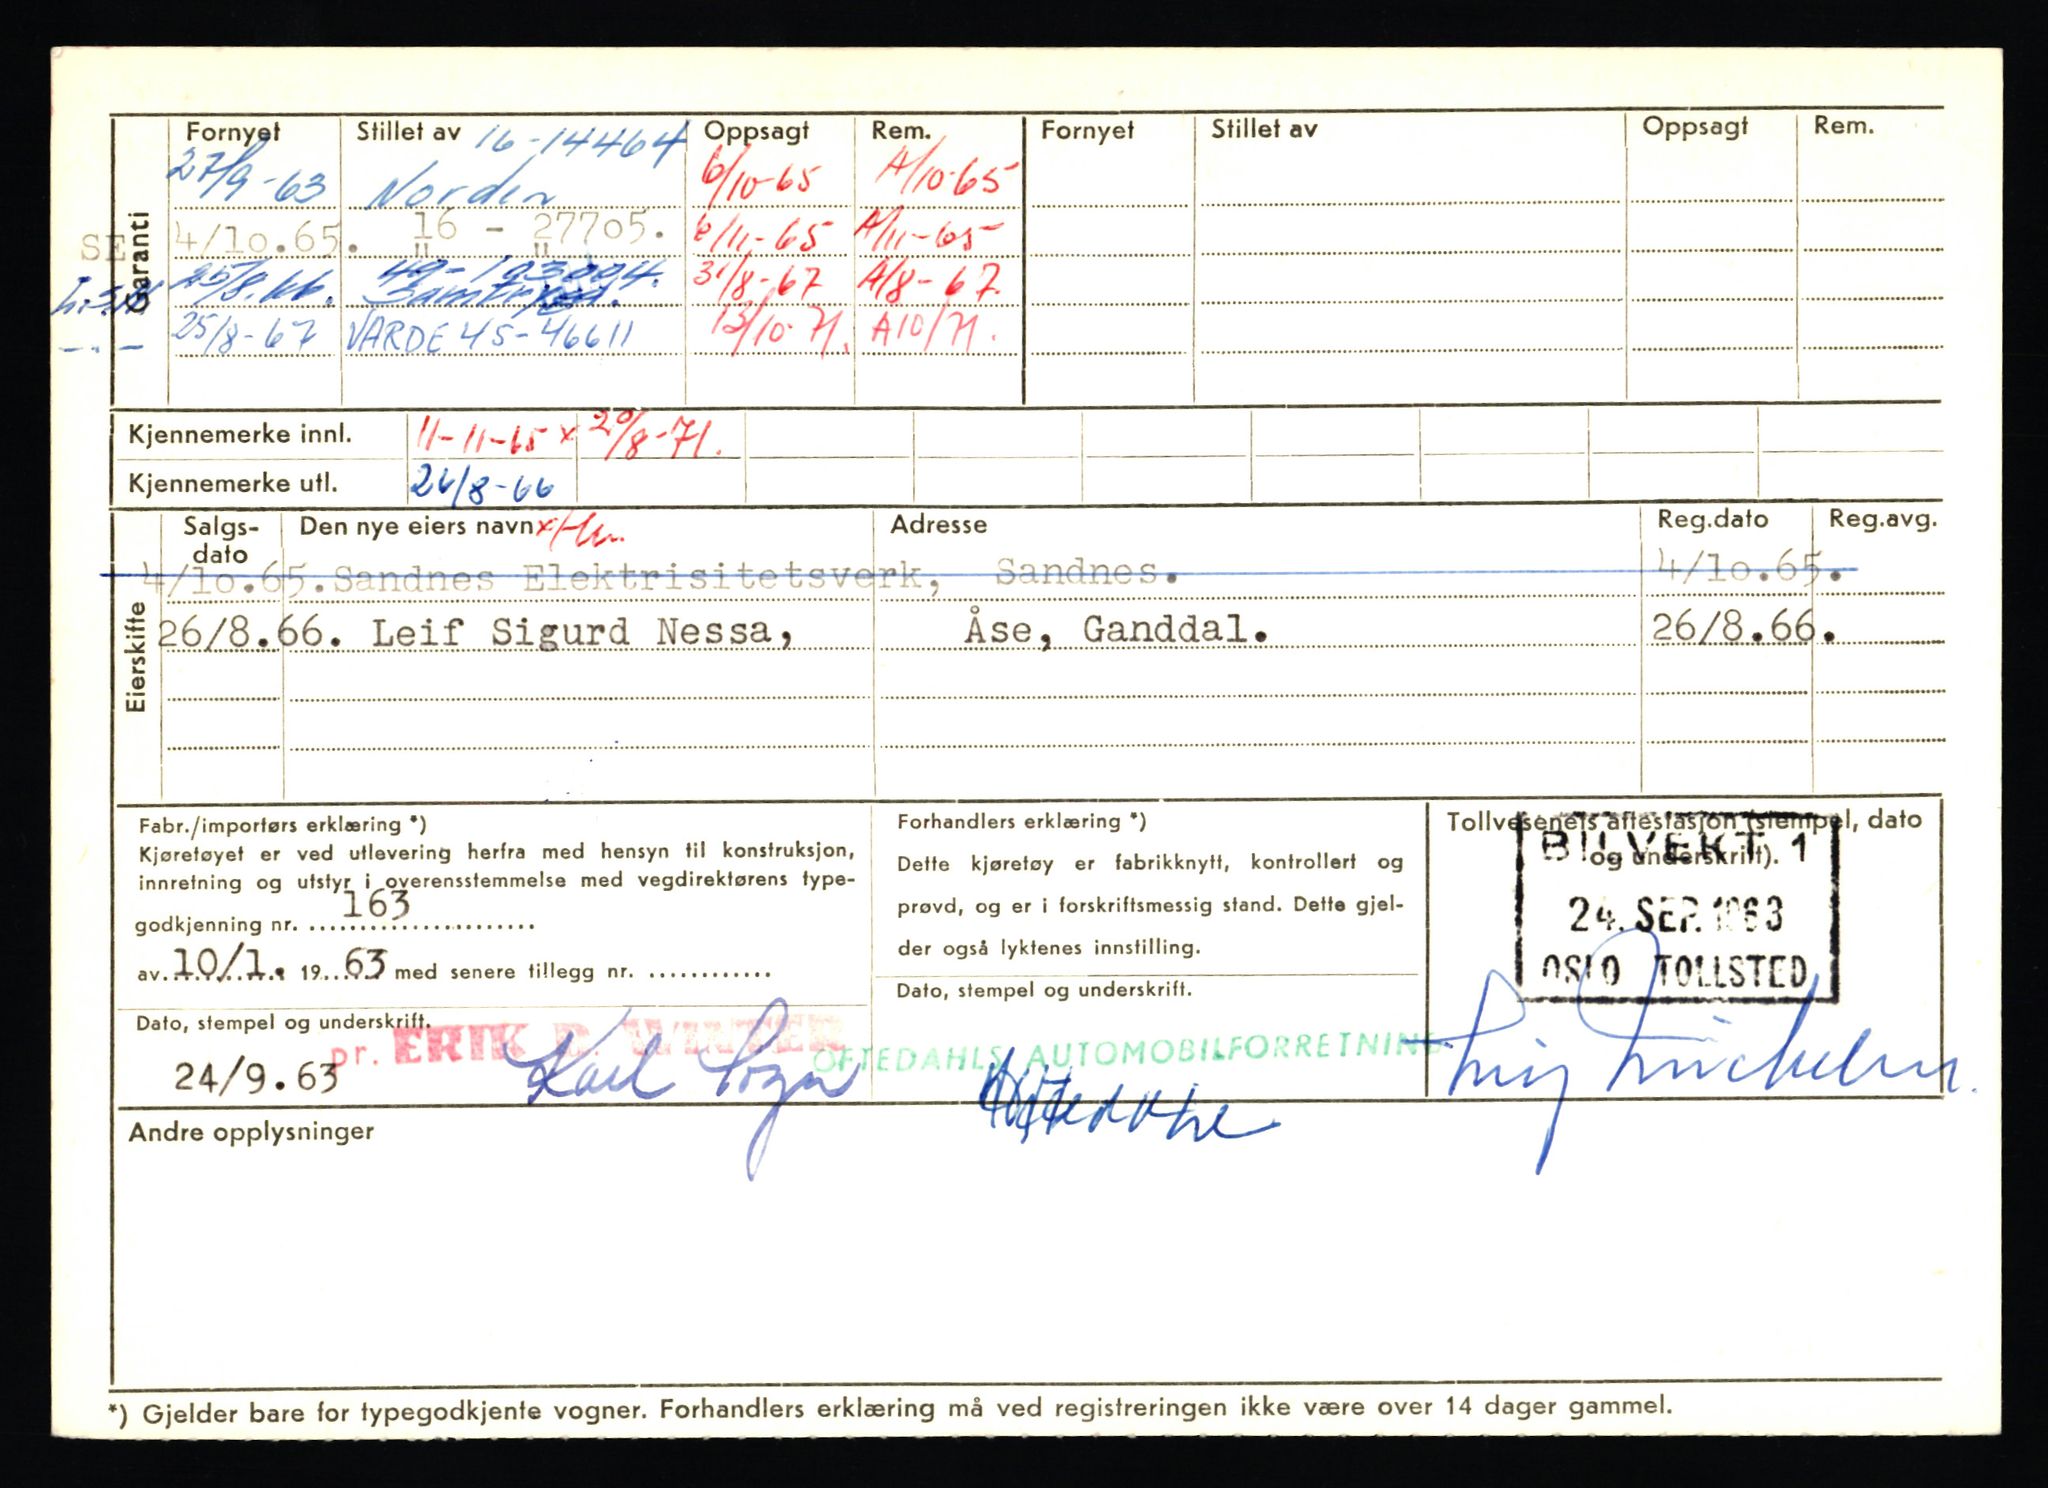 Garanti
Fornyet Stillet av 16-14464 Oppsagt Rem. Fornyet Stillet av Oppsagt Rem.
27/9-63 Norden 6/10-65 A/10-65
SE 4/10.65. 16 - 27705. 6/11-65 A/11-65
25/8.66. 49-193004. 31/8-67 A/8-67.
25/8-67 VARDE 45-46611 13/10-71. A10/71.
Kjennemerke innl. 11-11-65 x 20/8-71.
Kjennemerke utl. 26/8-66
Eierskifte
Salgs-dato Den nye eiers navn Adresse Reg.dato Reg.avg.
4/10.65. Sandnes Elektrisitetsverk, Sandnes. 4/10.65.
26/8.66. Leif Sigurd Nessa, Åse, Ganddal. 26/8.66.
Fabr./importørs erklæring *)
Kjøretøyet er ved utlevering herfra med hensyn til konstruksjon,
innretning og utstyr i overensstemmelse med vegdirektørens type-
godkjenning nr. 163
av 10/1. 1963 med senere tillegg nr.
Dato, stempel og underskrift.
pr. ERIK B. WINTER
24/9.63 Karl
Forhandlers erklæring *)
Dette kjøretøy er fabrikknytt, kontrollert og
prøvd, og er i forskriftsmessig stand. Dette gjel-
der også lyktenes innstilling.
Dato, stempel og underskrift.
OFTEDAHLS AUTOMOBILFORRETNING
Tollvesenets attestasjon (stempel, dato
og underskrift).
BILVEKT 1
24. SEP. 1963
OSLO TOLLSTED
Andre opplysninger
*) Gjelder bare for typegodkjente vogner. Forhandlers erklæring må ved registreringen ikke være over 14 dager gammel.